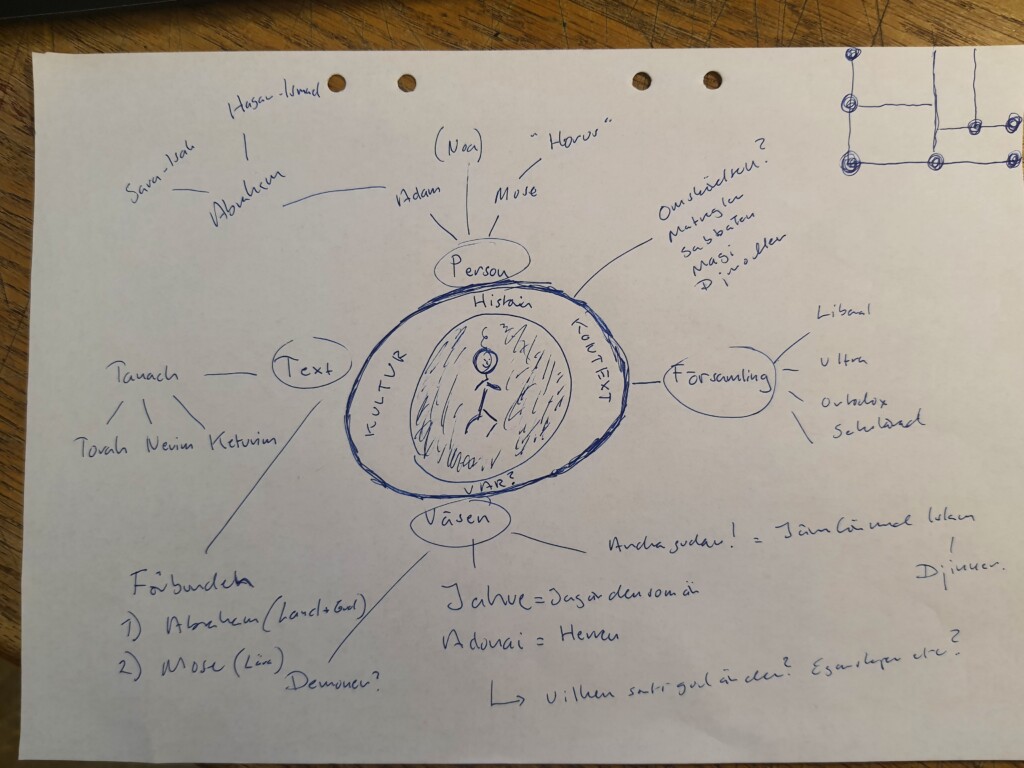 Hagar-Ismael
Sara-Isak
Abraham
Adam
(Noa)
Mose
"Horus"
Person
Omskärelsen?
Matregler
Sabbaten
Magi
Historia
KULTUR
KONTEXT
VAR?
Text
Tanach
Torah Nevim Ketuvim
Församling
Liberal
Ultra
Ortodox
Sekulariserad
Väsen
Andra gudar! = Jämför med Islam
Djinner.
Jahve = Jag är den som är
Adonai = Herren
↳ Vilken sorts gud är den? Egenskaper etc?
Demoner?
Förbunden
1) Abraham (Land + Gud)
2) Mose (Lära)